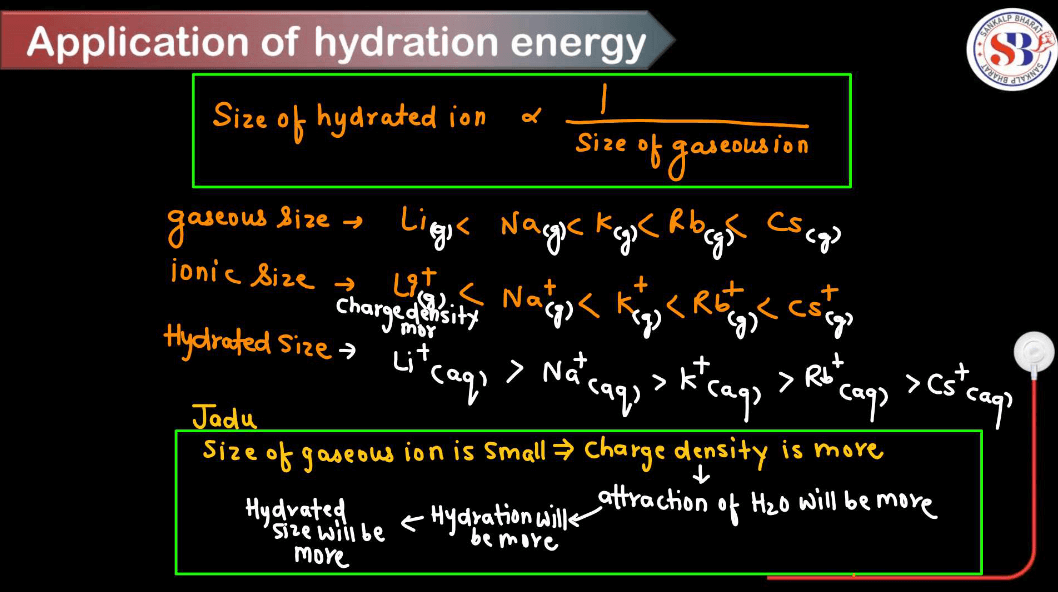 Application of hydration energy
SANKALP BHARAT
SB
SANKALP BHARAT
Size of hydrated ion ∝ 1 / Size of gaseous ion
gaseous Size → Li(g) < Na(g) < K(g) < Rb(g) < Cs(g)
ionic Size → Li+(g) < Na+(g) < K+(g) < Rb+(g) < Cs+(g)
charge density
mor
Hydrated Size → Li+(aq) > Na+(aq) > K+(aq) > Rb+(aq) > Cs+(aq)
Jadu
Size of gaseous ion is Small ⇒ Charge density is more
↓
attraction of H2O will be more
← Hydration will
be more
← Hydrated
size will be
more